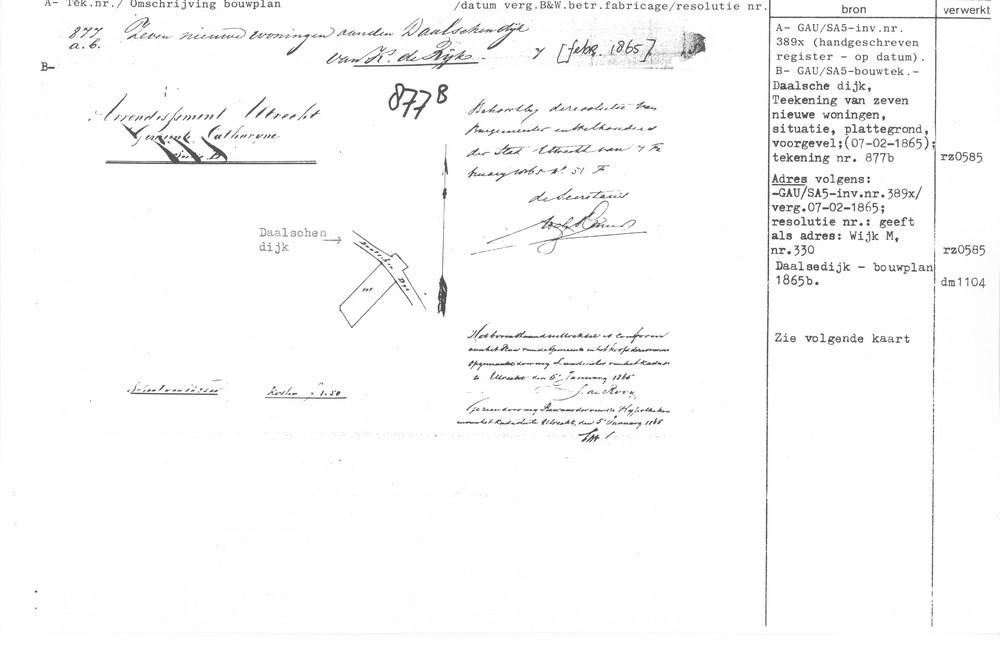 A- Tek.nr./ Omschrijving bouwplan /datum verg.B&W.betr.fabricage/resolutie nr.
877 a.b. Zeven nieuwe woningen aan den Daalschendijk
van K. de Rijk. 7 [febr. 1865]
B-
877 B
Arrondissement Utrecht
Gemeente Catharyne
Sectie B
Behoort bij de resolutie van
Burgemeester en Wethouders
der Stad Utrecht van 7 Fe
bruary 1865 No. 51 F
de Secretaris
Daalschen
dijk
Daalschen Dyk
Het bovenstaand uittreksel is conform
aan het Plan van de Gemeente en het
opgemaakt door mij Landmeter van het Kadas
Utrecht den 5 January 1865
J. de Rooy
Gezien door mij Bewaarder van de Hypotheken
en van het Kadaster te Utrecht, den 5 January 1865
Schaal van
Kosten 1.50
bron
verwerkt
A- GAU/SA5-inv.nr.
389x (handgeschreven
register - op datum).
B- GAU/SA5-bouwtek.-
Daalsche dijk,
Teekening van zeven
nieuwe woningen,
situatie, plattegrond,
voorgevel;(07-02-1865);
tekening nr. 877b rz0585
Adres volgens:
-GAU/SA5-inv.nr.389x/
verg.07-02-1865;
resolutie nr.: geeft
als adres: Wijk M,
nr.330 rz0585
Daalsedijk - bouwplan
1865b. dm1104
Zie volgende kaart